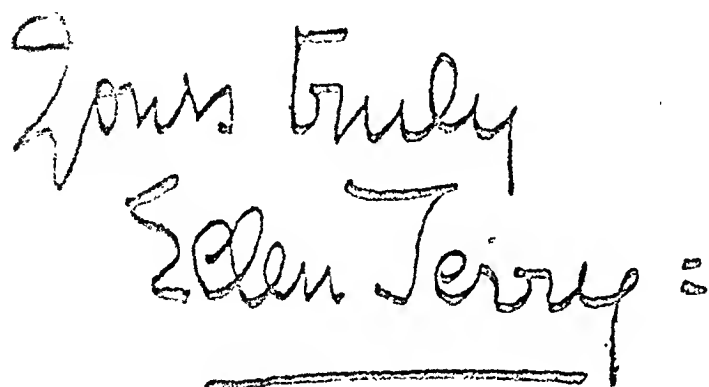 Yours truly
Ellen Terry =